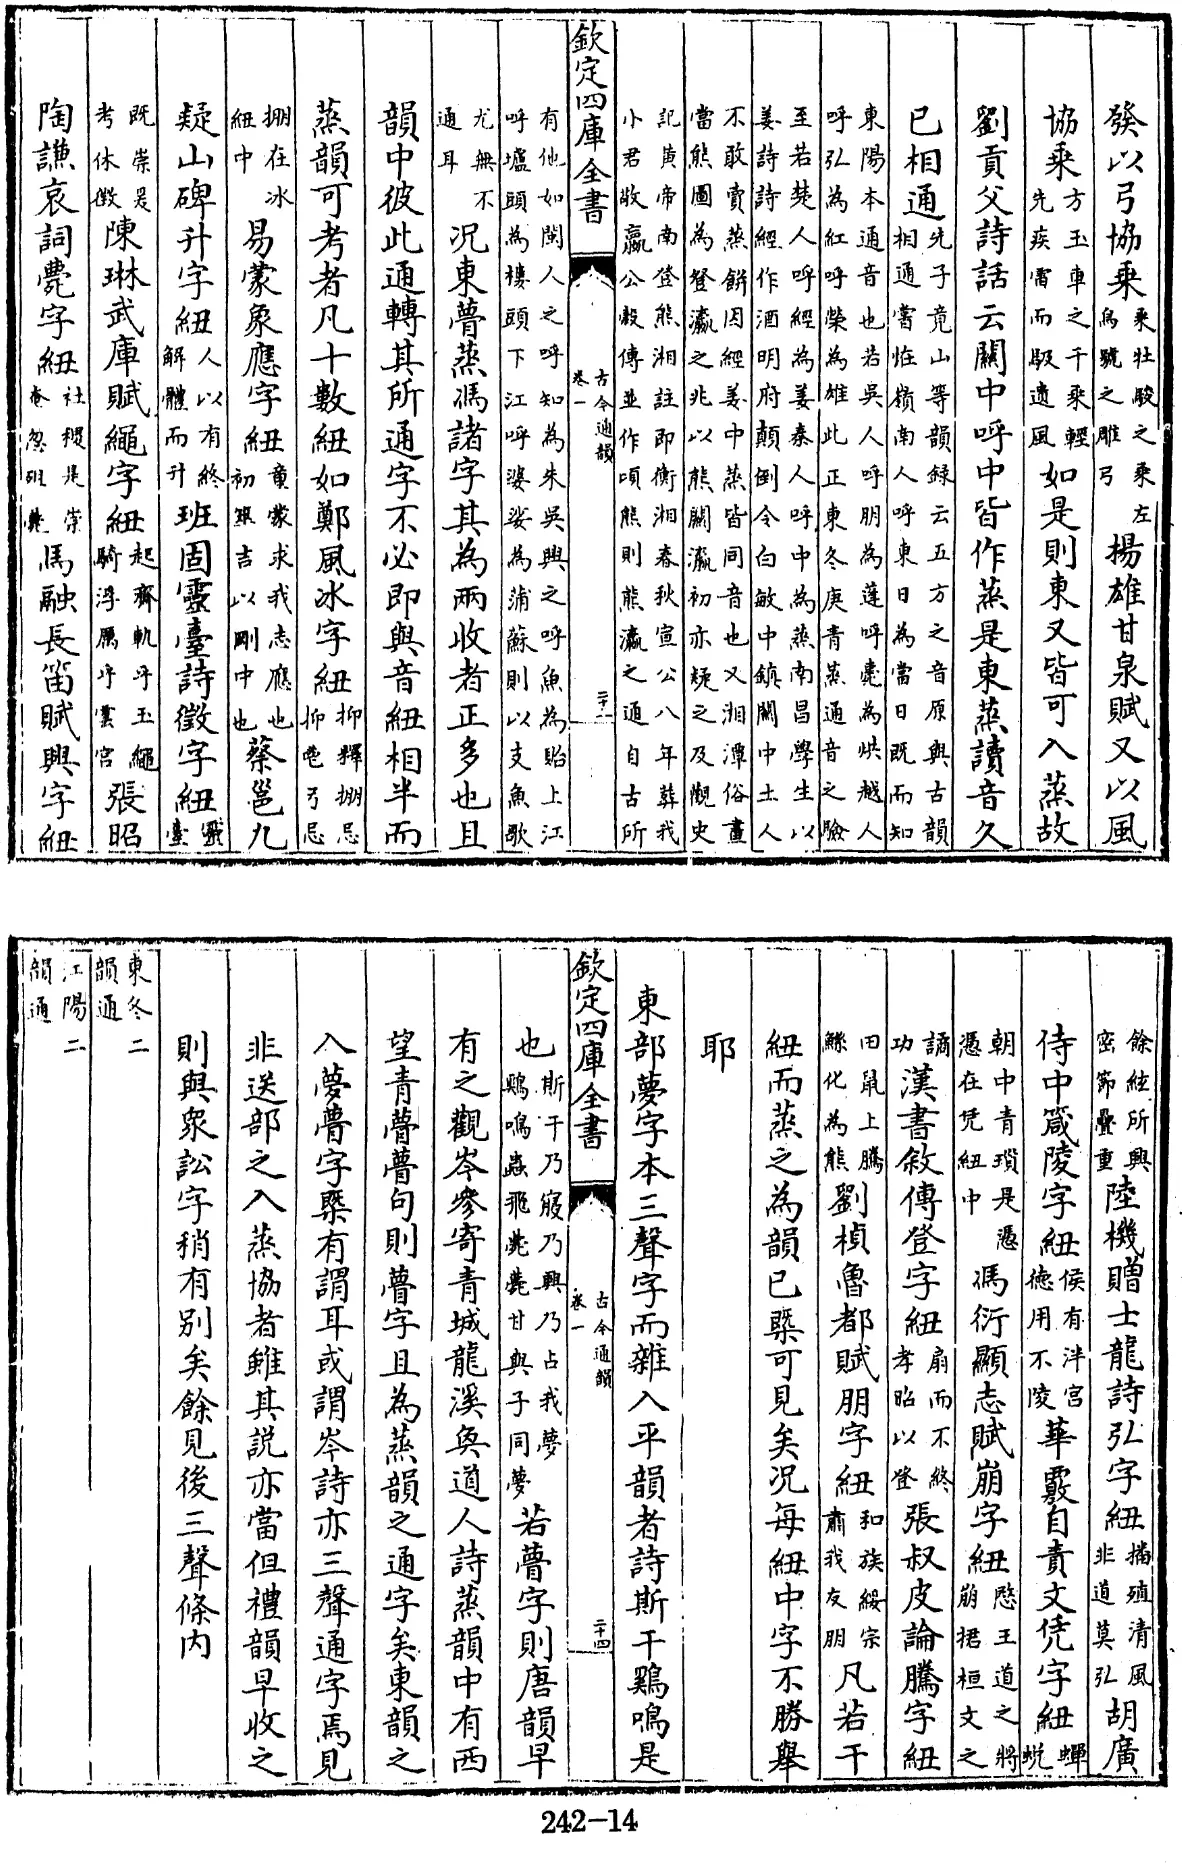 發以弓協乘乘牡駿之乘左烏號之雕弓揚雄甘泉賦又以風
協乘方玉車之千乘輕先疾雷而馺遺風如是則東又皆可入蒸故
劉貢父詩話云關中呼中皆作蒸是東蒸讀音久
已相通先子竟山等韻録云五方之音原與古韻相通嘗怪嶺南人呼東日為當日既而知
東陽本通音也若吳人呼朋為蓬呼甍為烘越人呼弘為紅呼榮為雄此正東冬庚青蒸通音之驗
至若楚人呼經為姜秦人呼中為蒸南昌學生以姜詩詩經作酒明府顛倒令白敏中鎮關中土人
不敢賣蒸餅因經姜中蒸皆同音也又湘潭俗畫當熊圖為登瀛之兆以熊關瀛初亦疑之及觀史
記黄帝南登熊湘註即衡湘春秋宣公八年葬我小君敬嬴公穀傳並作頃熊則熊瀛之通自古所
欽定四庫全書 古今通韻 卷一
有他如閩人之呼知為朱吳興之呼魚為貽上江呼壚頭為樓頭下江呼婆娑為蒲蘇則以支魚歌
尤無不通耳況東瞢蒸馮諸字其為兩收者正多也且
韻中彼此通轉其所通字不必即與音紐相半而
蒸韻可考者凡十數紐如鄭風冰字紐抑釋掤忌抑鬯弓忌
掤在冰紐中易蒙象應字紐童蒙求我志應也初筮吉以剛中也蔡邕九
疑山碑升字紐人以有終解體而升班固靈臺詩徵字紐靈臺
既崇爰考休徵陳琳武庫賦繩字紐起齊軌乎玉繩騎浮厲乎雲宫張昭
陶謙哀詞薨字紐社稷是崇奄忽殂薨馬融長笛賦興字紐
餘絃所興密節疊重陸機贈士龍詩弘字紐播殖清風非道莫弘胡廣
侍中箴陵字紐侯有泮宫德用不陵華覈自責文凭字紐蟬蛻
朝中青瑣是憑憑在凭紐中馮衍顯志賦崩字紐愍王道之將崩捃桓文之
譎功漢書敘傳登字紐扇而不終孝昭以登張叔皮論騰字紐
田鼠上騰鱗化為熊劉楨魯都賦朋字紐和族綏宗肅我友朋凡若干
紐而蒸之為韻已槩可見矣况每紐中字不勝舉
耶
東部夢字本三聲字而雜入平韻者詩斯干鷄鳴是
欽定四庫全書 古今通韻 卷一 二十四
也斯干乃寢乃興乃占我夢鷄鳴蟲飛薨薨甘與子同夢若瞢字則唐韻早
有之觀岑參寄青城龍溪奐道人詩蒸韻中有西
望青瞢瞢句則瞢字且為蒸韻之通字矣東韻之
入夢瞢字槩有謂耳或謂岑詩亦三聲通字焉見
非送部之入蒸協者雖其説亦當但禮韻早收之
則與衆訟字稍有别矣餘見後三聲條内
東冬二韻通
江陽二韻通
242-14